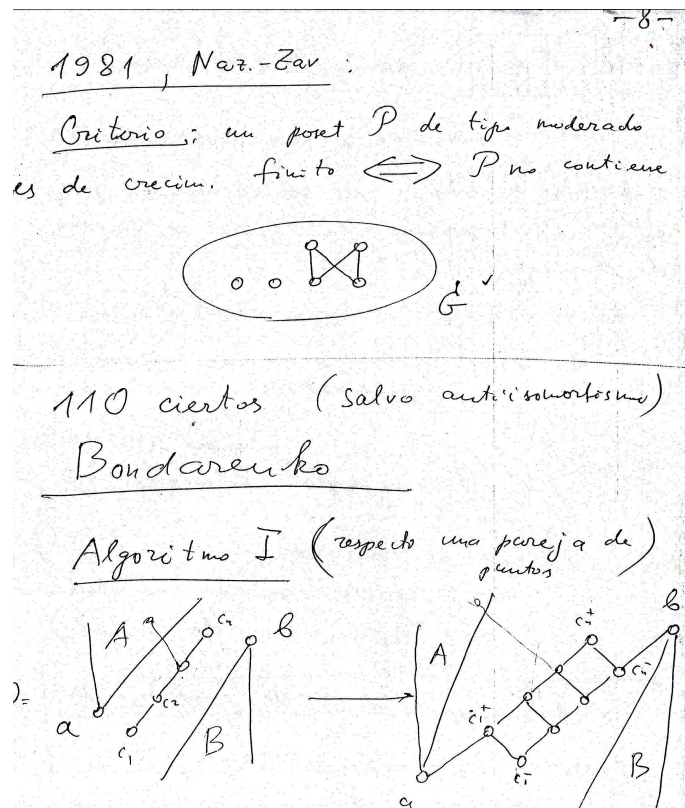 -8-
1981, Naz.-Zav :
Criterio : un poset P de tipo moderado
es de crecim. finito ⟺ P no contiene
G ✓
110 ciertos (salvo antiisomorfismo)
Bondarenko
Algoritmo I (respecto una pareja de
puntos)
A cn b A cn+ b
)= c2 cn-
a c1 B c1+ c1- B
a